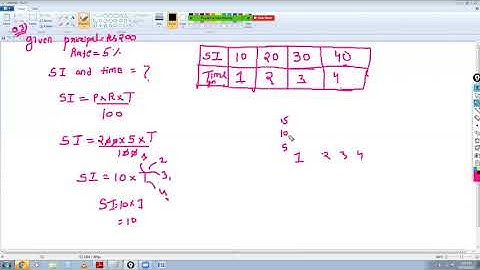 given principal = Rs 200
Rate = 5%
SI and time = ?
SI = P×R×T
100
SI = 200×5×T
100
SI = 10 × T
1
2
3
4
SI = 10×1
= 10
SI 10 20 30 40
Time 1 2 3 4
15
10
5
1 2 3 4